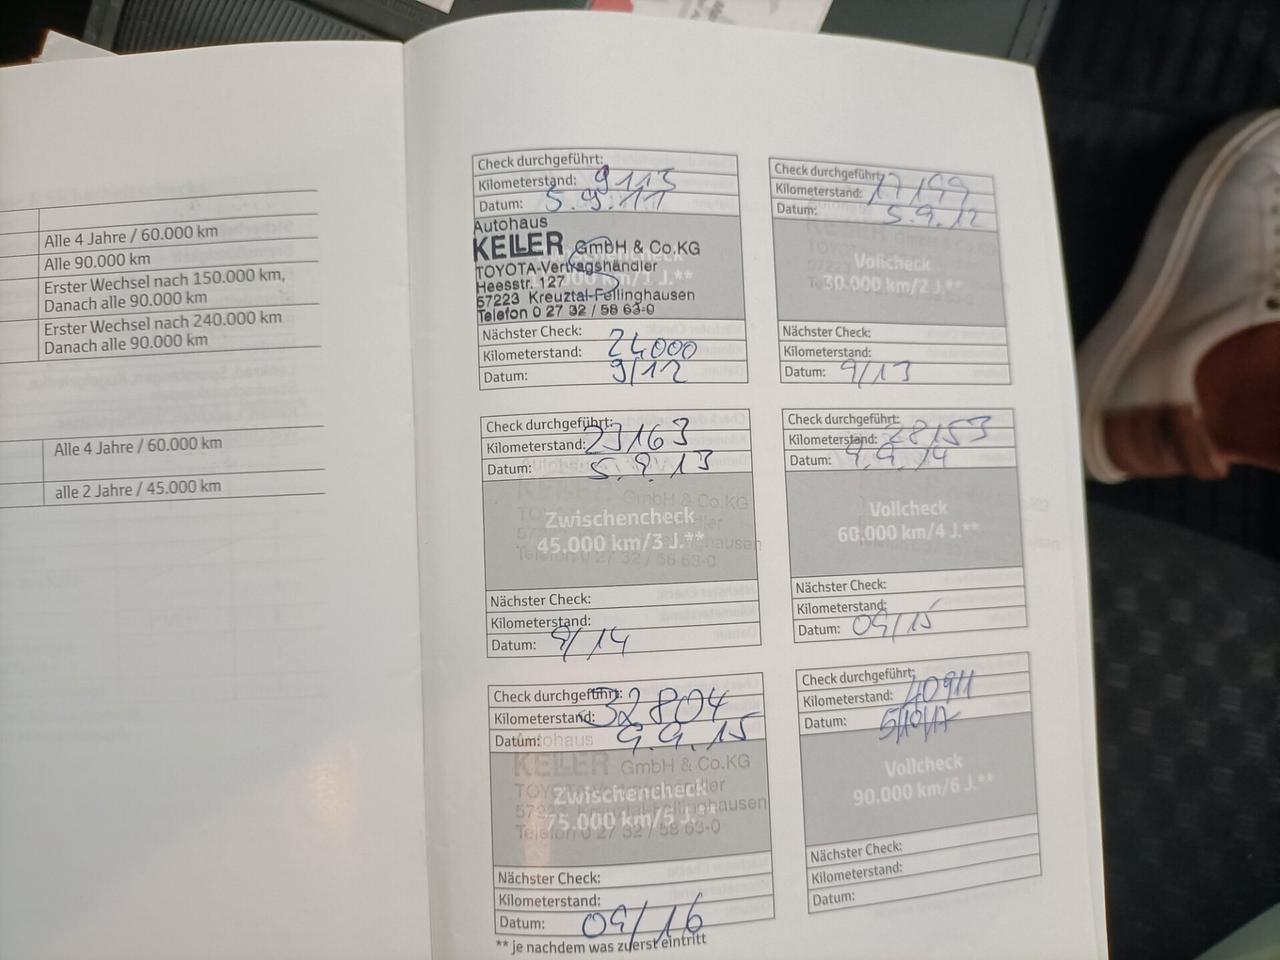 Alle 4 Jahre / 60.000 km
Alle 90.000 km
Erster Wechsel nach 150.000 km,
Danach alle 90.000 km
Erster Wechsel nach 240.000 km
Danach alle 90.000 km
Alle 4 Jahre / 60.000 km
alle 2 Jahre / 45.000 km
Check durchgeführt:
Kilometerstand: 9113
Datum: 5.9.11
Autohaus
KELLER GmbH & Co.KG
TOYOTA-Vertragshändler
Heesstr. 127
57223 Kreuztal-Fellinghausen
Telefon 0 27 32 / 58 63-0
Nächster Check:
Kilometerstand: 24000
Datum: 9/12
Check durchgeführt:
Kilometerstand: 17199
Datum: 5.9.12
Vollcheck
30.000 km/2 J.**
Nächster Check:
Kilometerstand:
Datum: 9/13
Check durchgeführt:
Kilometerstand: 23163
Datum: 5.9.13
Zwischencheck
45.000 km/3 J.**
Nächster Check:
Kilometerstand:
Datum: 9/14
Check durchgeführt:
Kilometerstand: 28153
Datum: 9.9.14
Vollcheck
60.000 km/4 J.**
Nächster Check:
Kilometerstand:
Datum: 09/15
Check durchgeführt:
Kilometerstand: 32804
Datum: 9.9.15
Autohaus
KELLER GmbH & Co.KG
Zwischencheck
75.000 km/5 J.**
Telefon 0 27 32 / 58 63-0
Nächster Check:
Kilometerstand:
Datum: 09/16
Check durchgeführt:
Kilometerstand: 40911
Datum: 5/10/17
Vollcheck
90.000 km/6 J.**
Nächster Check:
Kilometerstand:
Datum:
** je nachdem was zuerst eintritt